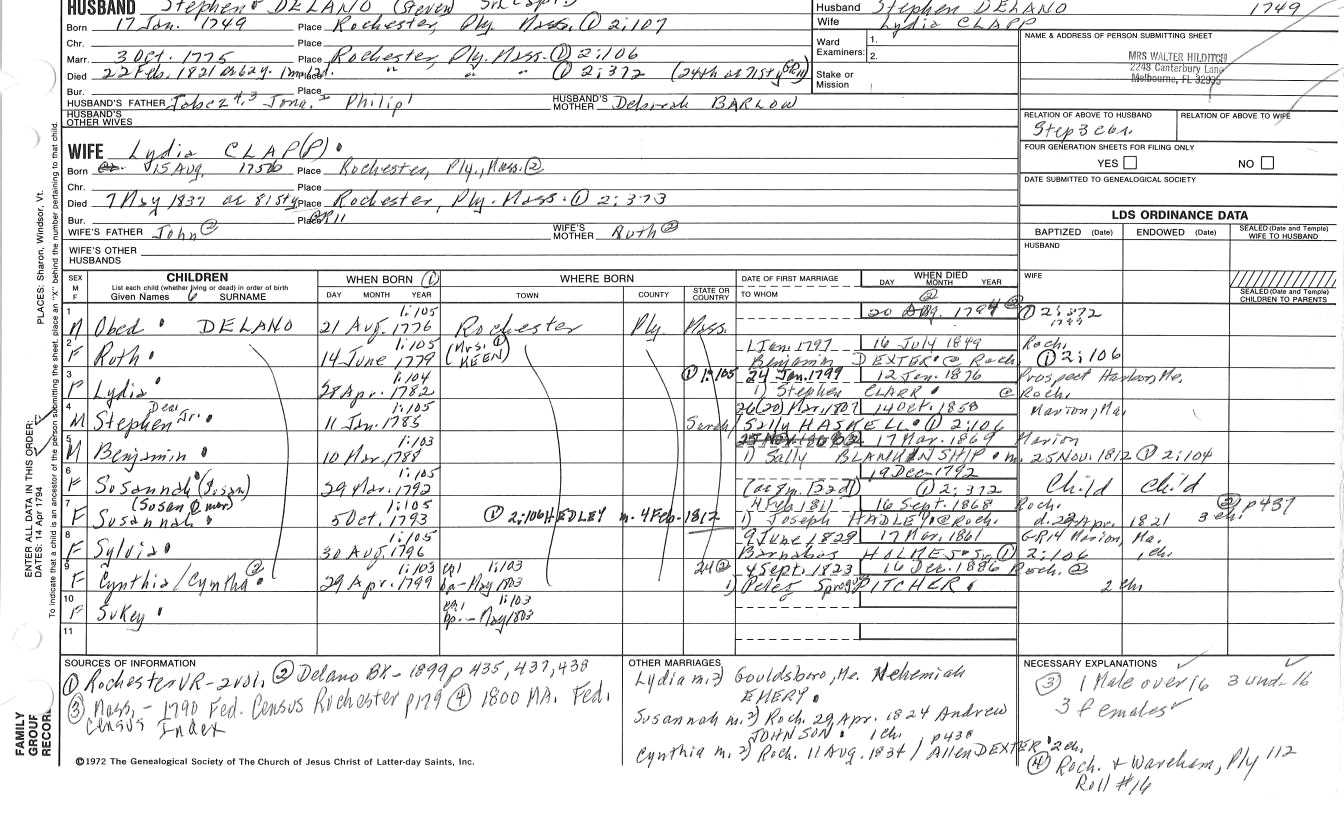 HUSBAND Stephen DELANO (Steven)
Husband Stephen DELANO 1749
Born 17 Jan. 1749 Place Rochester, Ply. Mass. ① 2:107
Wife Lydia CLAPP
Chr. Place
Ward Examiners: 1. 2.
NAME & ADDRESS OF PERSON SUBMITTING SHEET
MRS WALTER HILDITCH
2248 Canterbury Lane
Melbourne, FL
Marr. 3 Oct. 1775 Place Rochester, Ply. Mass. ① 2:106
Died 22 Feb. 1821 Place " " ① 2:372 (24th
Stake or Mission
Bur. Place
HUSBAND'S FATHER Jabez 4,3 Jona. 2 Philip 1 HUSBAND'S MOTHER Deborah BARLOW
HUSBAND'S OTHER WIVES
RELATION OF ABOVE TO HUSBAND RELATION OF ABOVE TO WIFE
WIFE Lydia CLAP(P)
FOUR GENERATION SHEETS FOR FILING ONLY
YES NO
Born 15 Aug. 1756 Place Rochester, Ply., Mass. ②
Chr. Place
DATE SUBMITTED TO GENEALOGICAL SOCIETY
Died 7 May 1837 Place Rochester, Ply. Mass. ① 2:373
Bur. Place GR11
LDS ORDINANCE DATA
WIFE'S FATHER John ② WIFE'S MOTHER Ruth ②
BAPTIZED (Date) ENDOWED (Date) SEALED (Date and Temple) WIFE TO HUSBAND
WIFE'S OTHER HUSBANDS
HUSBAND
WIFE
SEALED (Date and Temple) CHILDREN TO PARENTS
SEX M F
CHILDREN
List each child (whether living or dead) in order of birth
Given Names 6 SURNAME
WHEN BORN ①
DAY MONTH YEAR
WHERE BORN
TOWN COUNTY STATE OR COUNTRY
DATE OF FIRST MARRIAGE
TO WHOM
WHEN DIED
DAY MONTH YEAR
1 M Obed DELANO 1:105 21 Aug. 1776 Rochester Ply. Mass. 20 Aug. 1794 ① 2:372
2 F Ruth 1:105 14 June 1779 (Mrs. ① KEEN) 1 Jan. 1797 16 July 1849 Roch.
Benjamin DEXTER @ Roch. ① 2:106
3 F Lydia 1:104 28 Apr. 1782 ① 1:105 24 Jan. 1799 12 Jan. 1876 Prospect Harbor, Me.
1) Stephen CLAPP @ Roch.
4 M Stephen Jr. Dea. 1:105 11 Jan. 1785 26(20) Mar. 1807 14 Oct. 1850 Marion, Ma.
Sarah/Sally HASKELL ① 2:106
5 M Benjamin 1:103 10 Mar. 1788 17 Mar. 1869 Marion
1) Sally BLANKINSHIP m. 25 Nov. 1812 ① 2:104
6 F Susannah (Susan) 1:105 29 Mar. 1792 19 Dec. 1792
① 2:372 Child Child
7 F Susannah 1:105 5 Oct. 1793 ① 2:106 HEDLEY m. 4 Feb. 1812 4 Feb 1811 16 Sept. 1868 Roch. ② p437
1) Joseph HADLEY @ Roch. d. 22 Apr. 1821 3 ch.
8 F Sylvia 1:105 30 Aug. 1796 9 June 1829 17 Mar. 1861 GR14 Marion, Ma.
Barnabas HOLMES Sr. ① 2:106 1 ch.
9 F Cynthia/Cyntha ② 1:103 29 Apr. 1799 1:103 bp. - May 1803 24 ② 4 Sept. 1823 16 Dec. 1886 Roch. ②
1) Peleg Sprague PITCHER 2 ch.
10 F Sukey 1:103 bp. - May 1803
11
SOURCES OF INFORMATION
① Rochester VR - 2 vol. ② Delano BK - 1899 p 435, 437, 438
③ Mass. - 1790 Fed. Census Rochester p179 ④ 1800 MA. Fed. Census Index
OTHER MARRIAGES
Lydia m. 2) Gouldsboro, Me. Nehemiah EMERY
Susannah m. 2) Roch. 29 Apr. 1824 Andrew JOHNSON 1 ch. p438
Cynthia m. 2) Roch. 11 Aug. 1834 / Allen DEXTER 2 ch.
NECESSARY EXPLANATIONS
③ 1 Male over 16 3 und 16
3 females
④ Roch. & Wareham, Ply 112
Roll #16
©1972 The Genealogical Society of The Church of Jesus Christ of Latter-day Saints, Inc.
FAMILY GROUP RECORD
ENTER ALL DATA IN THIS ORDER:
DATES: 14 Apr 1794
PLACES: Sharon, Windsor, Vt.
To indicate that a child is an ancestor of the person submitting the sheet, place an "X" behind the number pertaining to that child.